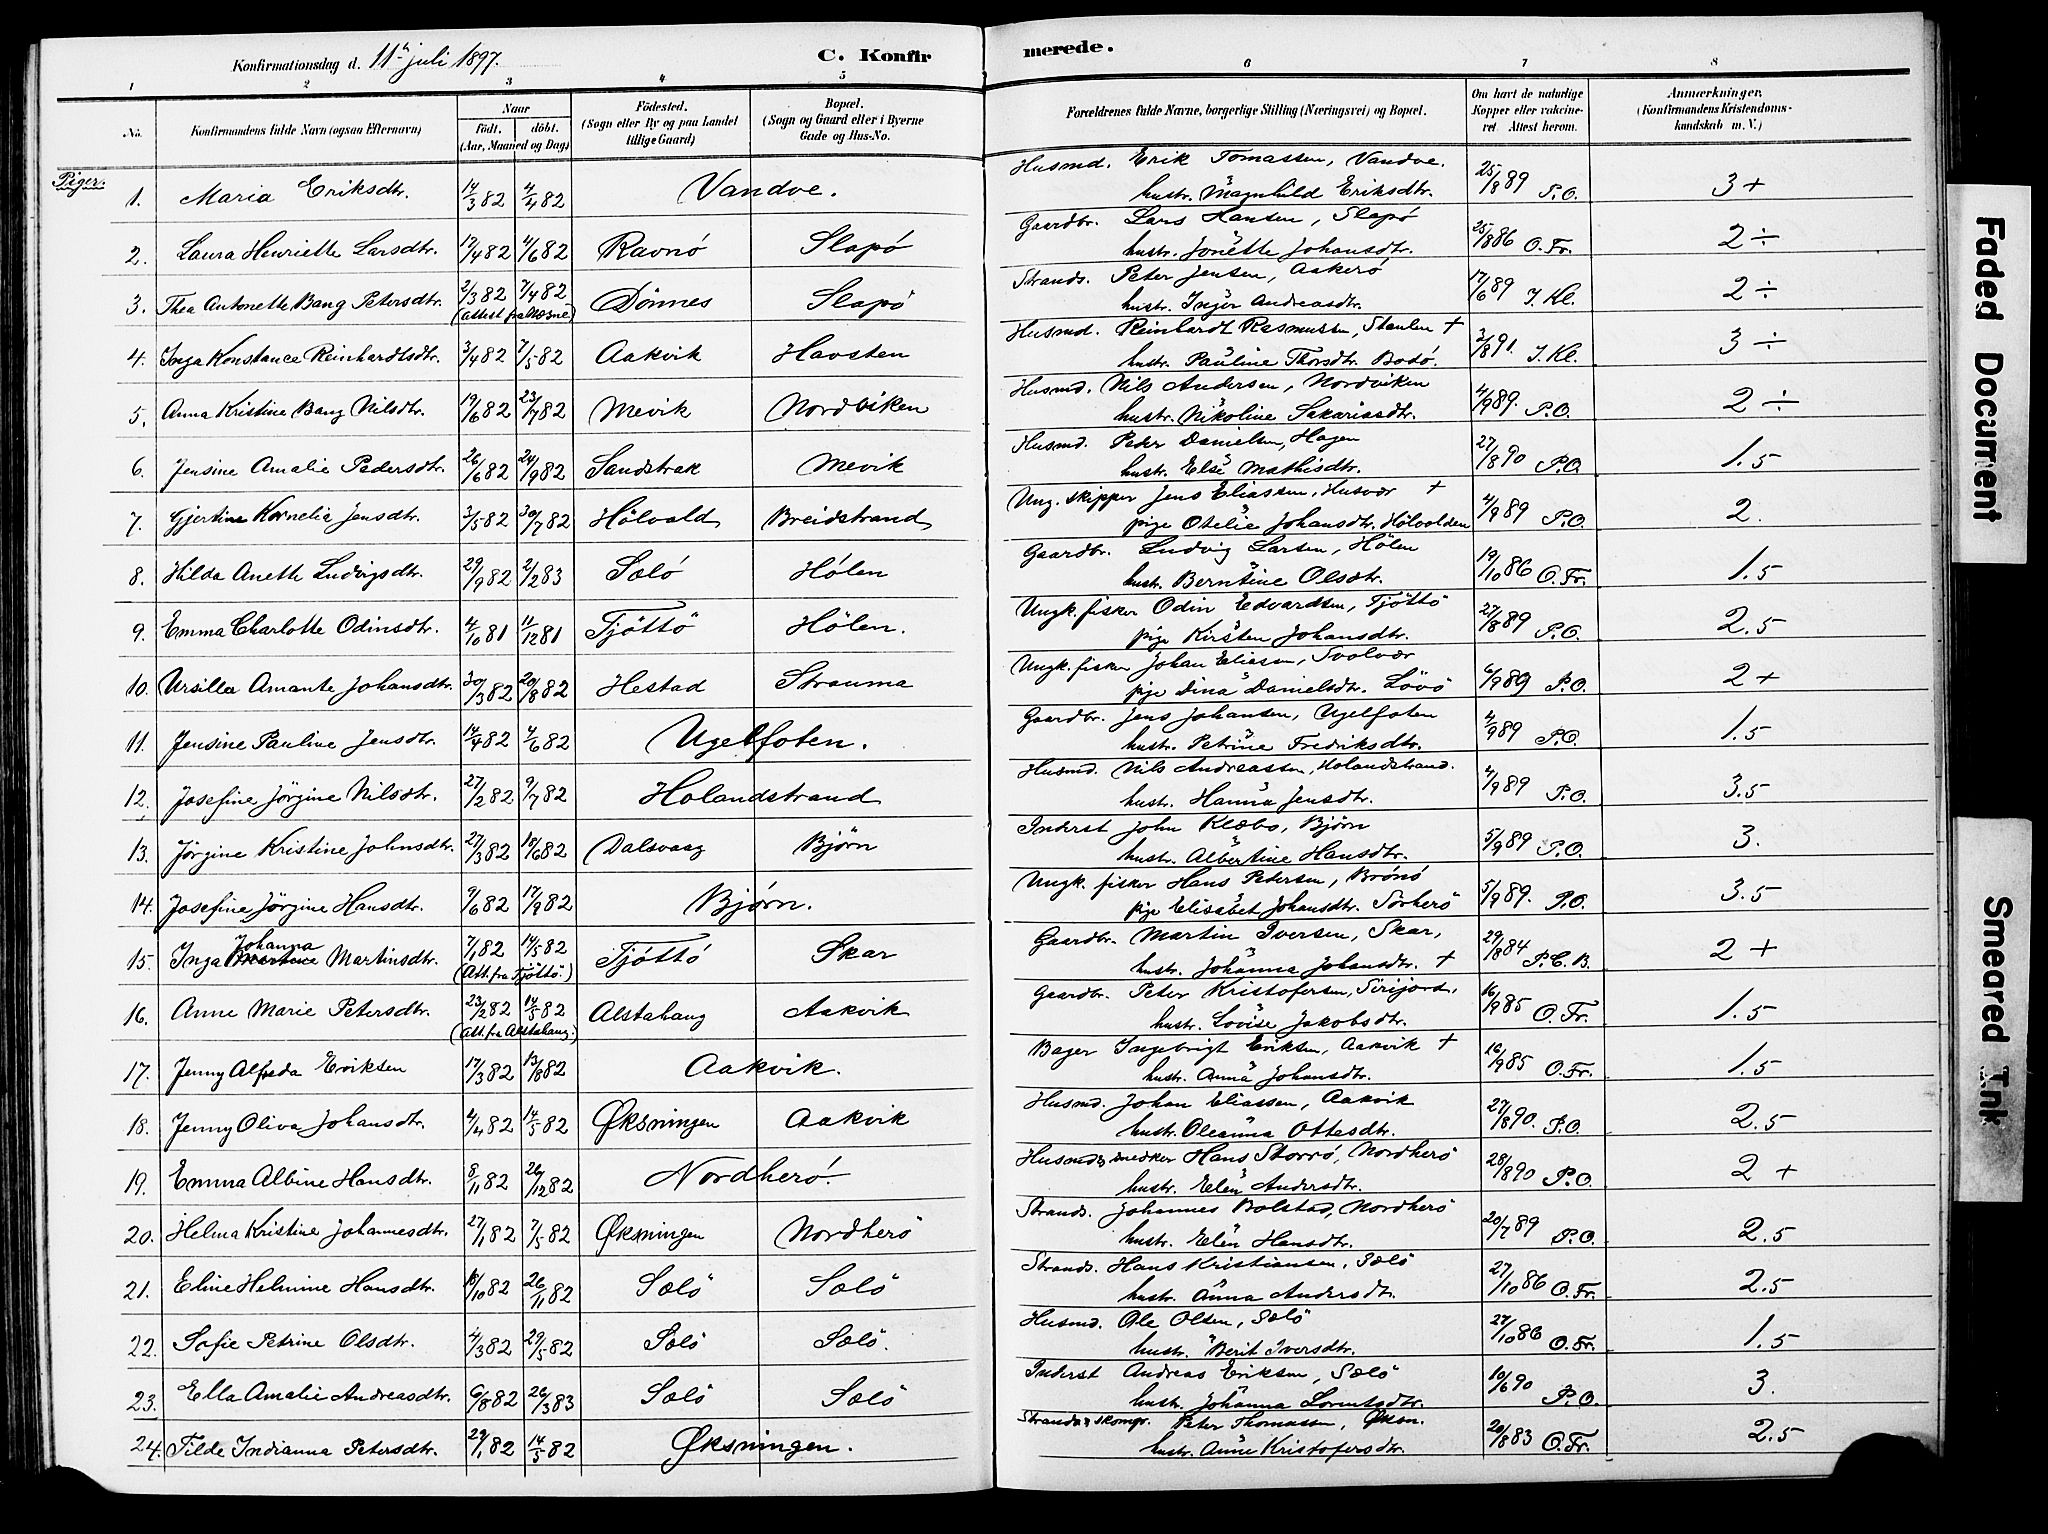 Konfirmationsdag d. 11te juli 1897. C. Konfirmerede.
1 2 3 4 5 6 7 8
No. Konfirmandens fulde Navn (ogsaa Efternavn) Naar født. døbt. (Aar, Maaned og Dag) Fødested. (Sogn eller By og paa Landet tillige Gaard) Bopæl. (Sogn og Gaard eller i Byerne Gade og Hus-No. Forældrenes fulde Navne, borgerlige Stilling (Næringsvei) og Bopæl. Om havt de naturlige Kopper eller vakcineret. Attest herom. Anmærkninger. (Konfirmandens Kristendomskundskab m. V.)
Piger.
1. Maria Eriksdtr. 14/3 82 4/4 82 Vandve. Husmd. Erik Tomassen, Vandve. 25/8 89 P.O. 3+
hustr. Magnhild Eriksdtr.
2. Laura Henriette Larsdtr. 17/4 82 4/6 82 Ravnö Slapö Gaardbr. Lars Hansen, Slapö 25/8 86 O.Fr. 2÷
hustr. Jonette Johansdtr.
3. Thea Antonette Bang Petersdtr. 2/3 82 7/4 82 (attest fra Næsne) Dönnes Slapö Strands. Peter Jensen, Aakerö 17/6 89 J.Kl. 2÷
hustr. Inger Andreasdtr.
4. Inga Konstance Reinhardtsdtr. 3/4 82 7/5 82 Aakvik Havsten Husmd. Reinhardt Rasmussen, + 2/8 91. J.Kl. 3÷
hustr. Pauline Thorsdtr. Bodö.
5. Anna Kristine Bang Nilsdtr. 19/6 82 23/7 82 Mevik Nordviken Husmd. Nils Andersen, Nordviken 4/9 89. P.O. 2÷
hustr. Nikoline Sakariasdtr.
6. Jensine Amalie Pedersdtr. 26/6 82 24/9 82 Sandstrak Mevik Husmd. Peder Danielsen, Hagen 27/8 90 P.O. 1.5
hustr. Else Mathisdtr.
7. Gjertine Kornelia Jensdtr. 3/5 82 30/7 82 Hölvald Breidstrand Ung. skipper Jens Eliassen, Husvær + 4/9 89 P.O. 2.
pige Otelie Johansdtr. Hölvalden
8. Hilda Anette Ludvigsdtr. 29/9 82 2/2 83 Sælö Hölen Gaardbr. Ludvig Larsen, Hölen 19/10 86 O.Fr. 1.5
hustr. Berntine Olsdtr.
9. Emma Charlotte Odinsdtr. 4/10 81 11/12 81 Tjöttö Hölen. Ungk. fisker Odin Edvardsen, Tjöttö 27/8 89 P.O. 2.5
pige Kirsten Johansdtr.
10. Ursilla Amante Johansdtr. 30/3 82 20/8 82 Hestad Strauma Ungk. fisker Johan Eliassen, Svolvær 6/9 89 P.O. 2+
pige Dina Danielsdtr. Lövö
11. Jensine Pauline Jensdtr. 14/4 82 4/6 82 Ugelfoten. Gaardbr. Jens Johansen, Ugelfoten 4/9 89 P.O. 1.5
hustr. Petrine Fredriksdtr.
12. Josefine Jörgine Nilsdtr. 27/2 82 9/7 82 Holandstrand Husmd. Nils Andreassen, Holandstrand. 4/9 89 P.O. 3.5
hustr. Hanna Jensdtr.
13. Jörgine Kristine Johnsdtr. 27/3 82 18/6 82 Dalsvaag Björn Inderst John Klæbo, Björn 5/9 89 P.O. 3.
hustr. Albertine Hansdtr.
14. Josefine Jörgine Hansdtr. 9/6 82 17/9 82 Björn. Ungk. fisker Hans Petersen, Brönö 5/9 89. P.O. 3.5
pige Elisabet Johansdtr. Sörherö
15. Inga Johanna Martinsdtr. 7/1 82 14/5 82 (Att. fra Tjöttö.) Tjöttö Skar Gaardbr. Martin Iversen, Skar, 29/8 84 P.C.B. 2+
hustr. Johanna Johansdtr. +
16. Anne Marie Petersdtr. 23/2 82 14/5 82 (Att. fra Alstahaug.) Alstahaug Aakvik Gaardbr. Peter Kristofersen, 16/9 85 O.Fr. 1.5
hustr. Lovise Jakobsdtr.
17. Jenny Alfreda Eriksen 17/3 82 13/8 82 Aakvik. Bager Ingebrigt Eriksen, Aakvik + 16/9 85 O.Fr. 1.5
hustr. Anna Johansdtr.
18. Jenny Oliva Johansdtr. 4/4 82 14/5 82 Øksningen Aakvik Husmd. Johan Eliassen, Aakvik 27/8 90. P.O. 2.5
hustr. Oleanna Ottesdtr.
19. Emma Albine Hansdtr. 8/11 82 26/12 82 Nordherö. Husmd. snedker Hans Storrö, Nordherö 28/8 90 P.O. 2+
hustr. Elen Andersdtr.
20. Helma Kristine Johannesdtr. 27/1 82 7/5 82 Øksningen Nordherö Strands. Johannes Bolstad, Nordherö 20/7 89 P.O. 2.5
hustr. Elen Hansdtr.
21. Eline Helmine Hansdtr. 18/10 82 26/11 82 Sælö Sælö Strands. Hans Kristiansen, Sælö 27/10 86 O.Fr. 2.5
hustr. Anna Andersdtr.
22. Sofie Petrine Olsdtr. 4/3 82 29/5 82 Sælö Sælö. Husmd. Ole Olsen, Sælö 27/10 86 O.Fr. 1.5
hustr. Berit Iversdtr.
23. Ella Amalie Andreasdtr. 6/8 82 26/3 83 Sælö Sælö Inderst Andreas Eriksen, Sælö 10/6 90 P.O. 3.
hustr. Johanna Lorentsdtr.
24. Tilde Indianna Petersdtr. 29/1 82 14/5 82 Øksningen. Peter Thomassen, Øksn. 20/8 83 O.Fr. 2.5
hustr. Anne Kristofersdtr.
Faded Document
Smeared Ink